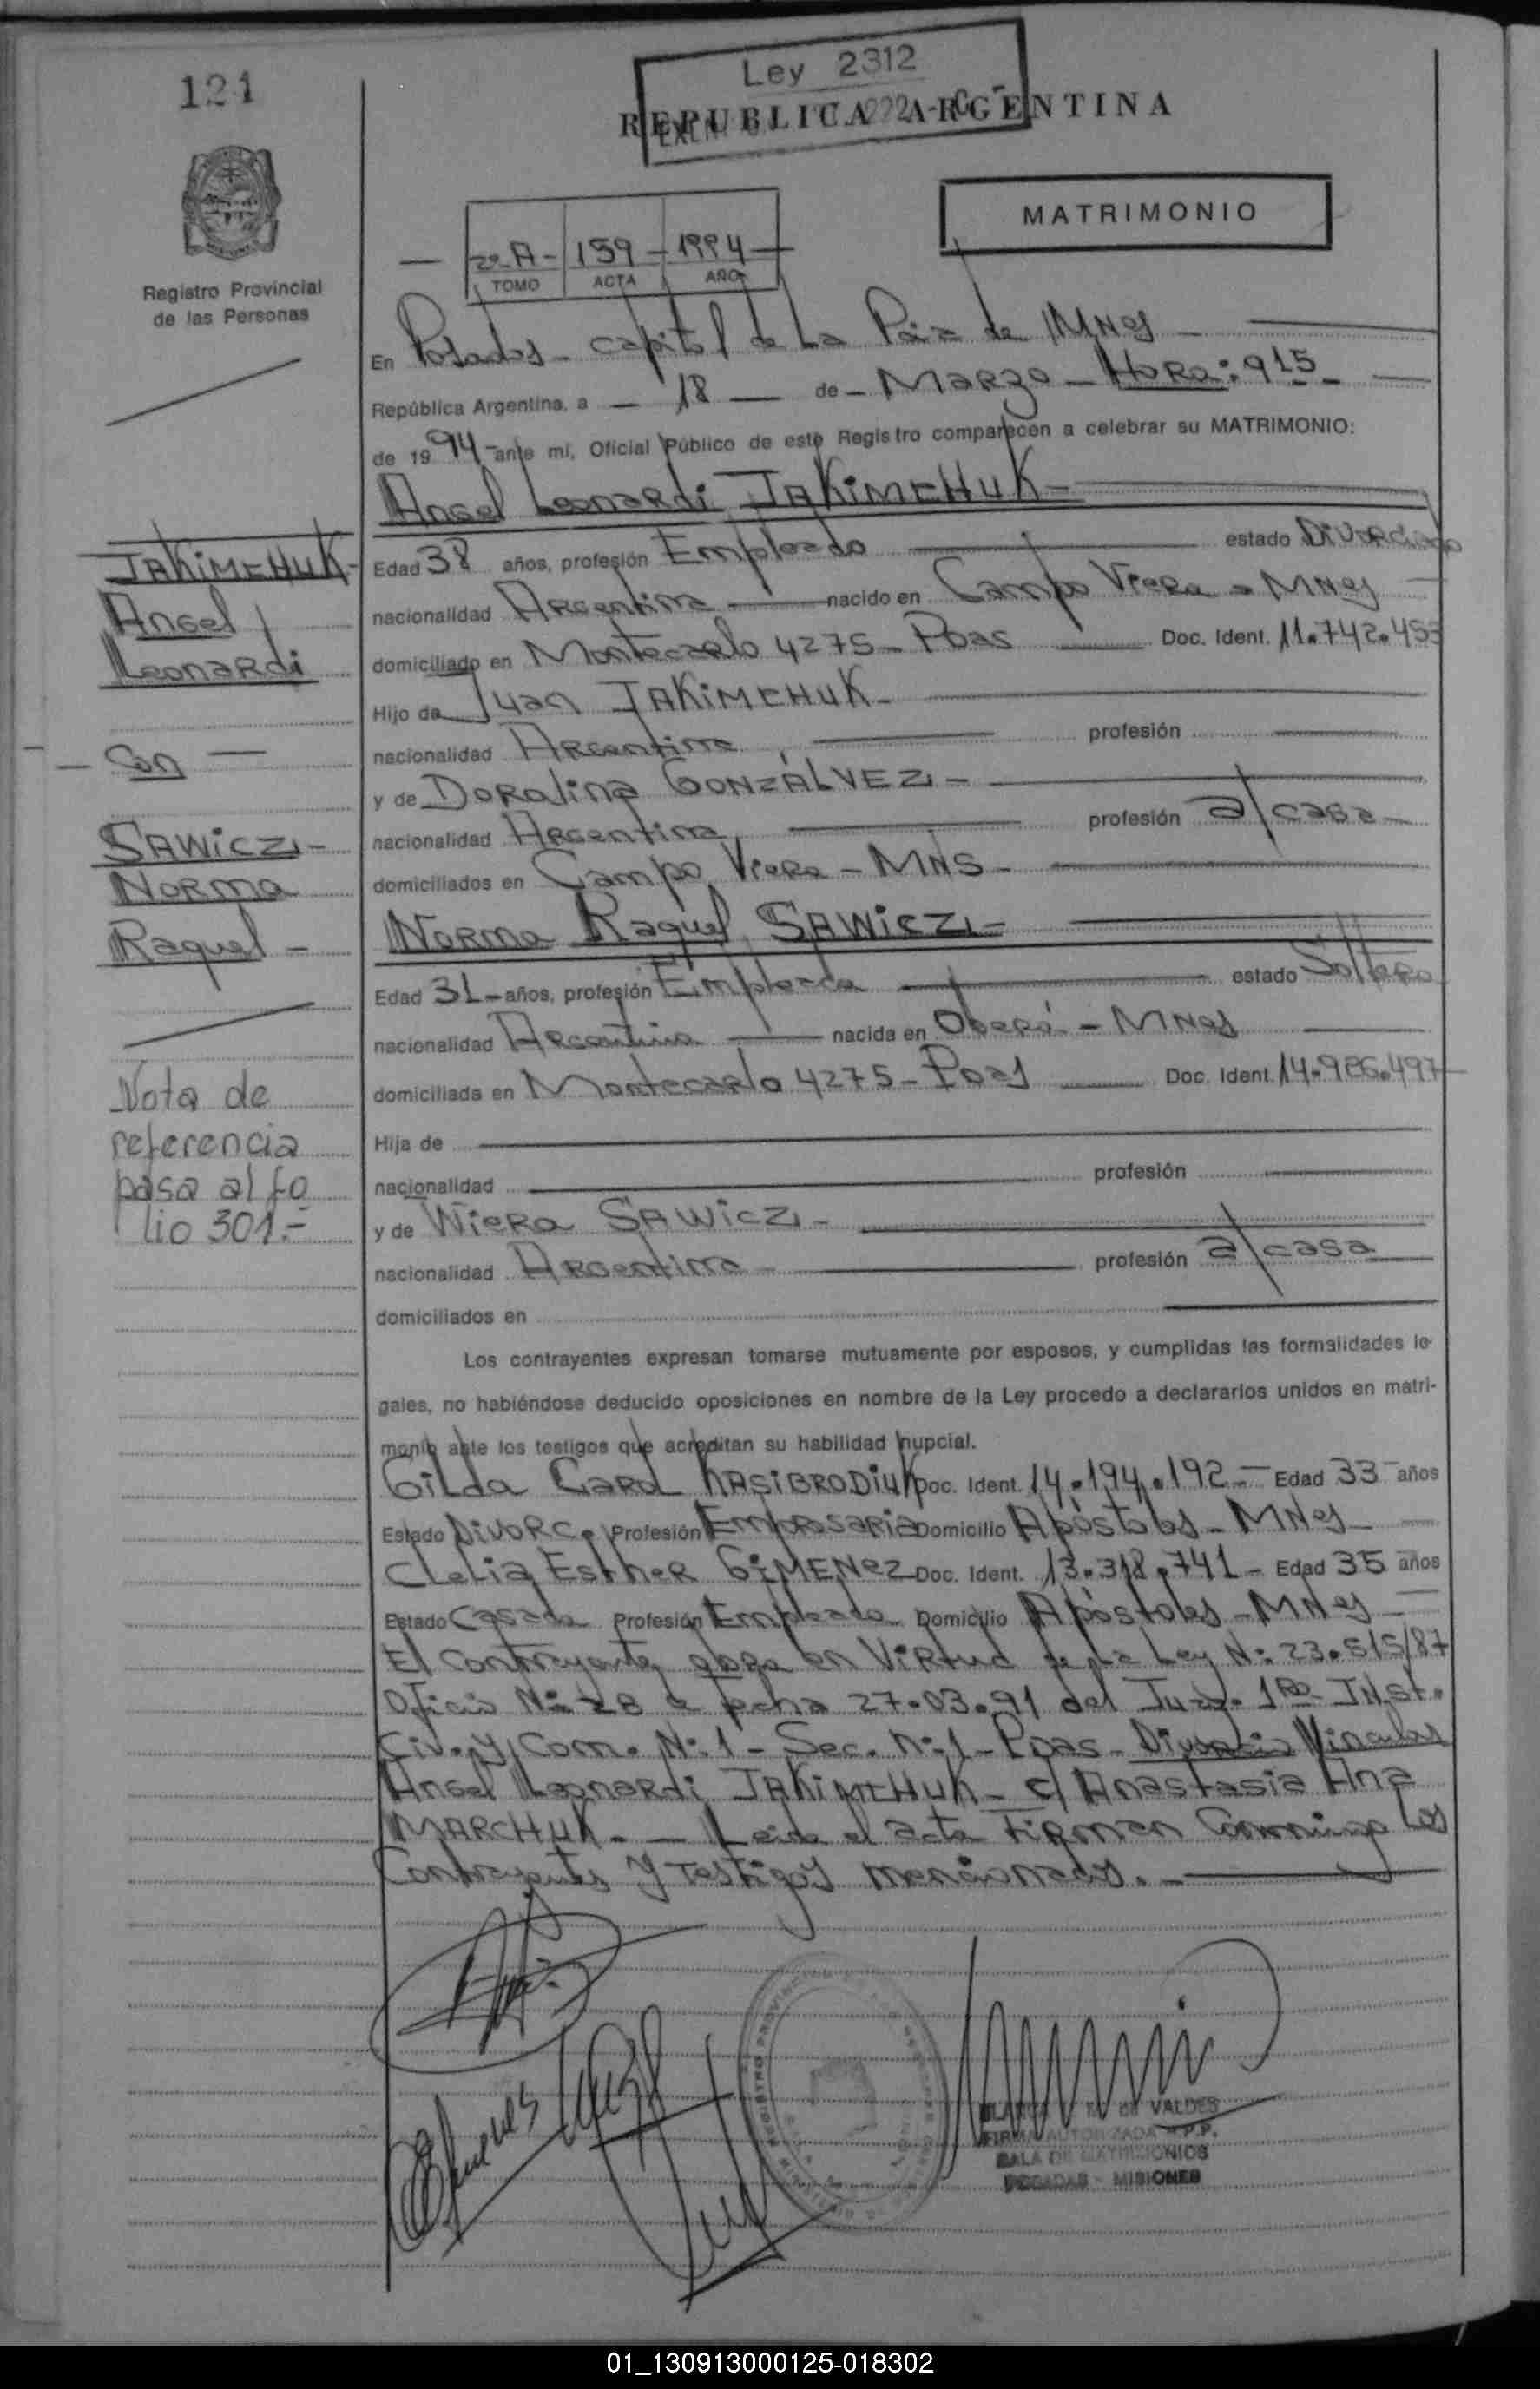 121
Ley 2312
REPUBLICA ARGENTINA
MATRIMONIO
2º A - 159 - 1994
TOMO ACTA AÑO
Registro Provincial
de las Personas
En Posadas - capital de La Pcia de MNes
República Argentina, a - 18 - de - Marzo - Hora: 9 15 -
de 1994 - ante mí, Oficial Público de este Registro comparecen a celebrar su MATRIMONIO:
Angel Leonardi JAKIMCHUK -
Edad 38 años, profesión Empleado estado Divorciado
nacionalidad Argentina nacido en Campo Viera - MNes
domiciliado en Montecarlo 4275 - Pdas Doc. Ident. 11.742.453
Hijo de Juan JAKIMCHUK -
nacionalidad Argentina profesión
y de Doralina GONZÁLVEZ -
nacionalidad Argentina profesión a/casa
domiciliados en Campo Viera - MNS -
Norma Raquel SAWICZ -
Edad 31 - años, profesión Empleada estado Soltera
nacionalidad Argentina nacida en Oberá - MNes
domiciliada en Montecarlo 4275 - Pdas Doc. Ident. 14.986.497
Hija de
nacionalidad profesión
y de Wiera SAWICZ -
nacionalidad Argentina - profesión a/casa
domiciliados en
Los contrayentes expresan tomarse mutuamente por esposos, y cumplidas las formalidades le-
gales, no habiéndose deducido oposiciones en nombre de la Ley procedo a declararlos unidos en matri-
monio ante los testigos que acreditan su habilidad nupcial.
Gilda Carol KASIBRODIUK Doc. Ident. 14.194.192 - Edad 33 años
Estado Divorc. Profesión Empresaria Domicilio Apóstoles - MNes
Clelia Esther GIMENEZ Doc. Ident. 13.318.741 - Edad 35 años
Estado Casada Profesión Empleada Domicilio Apóstoles - MNes
El contrayente, goza en Virtud de La Ley Nº 23.515/87
Oficio Nº 28 de fecha 27.03.91 del Juzg. 1ra INst.
Civ. y Com. Nº 1 - Sec. Nº 1 - Pdas - Divorcio Vincular
Angel Leonardi JAKIMCHUK - c/ Anastasia Ana
MARCHUK. - Leida el acta Firman Conmigo Los
Contrayentes y Testigos mencionados. -
JAKIMCHUK -
Angel
Leonardi
- Con -
SAWICZ -
Norma
Raquel -
Nota de
referencia
pasa al fo
lio 301.-
M. de VALDES
FIRMA AUTORIZADA - P.P.
SALA DE MATRIMONIOS
POSADAS - MISIONES
01_130913000125-018302